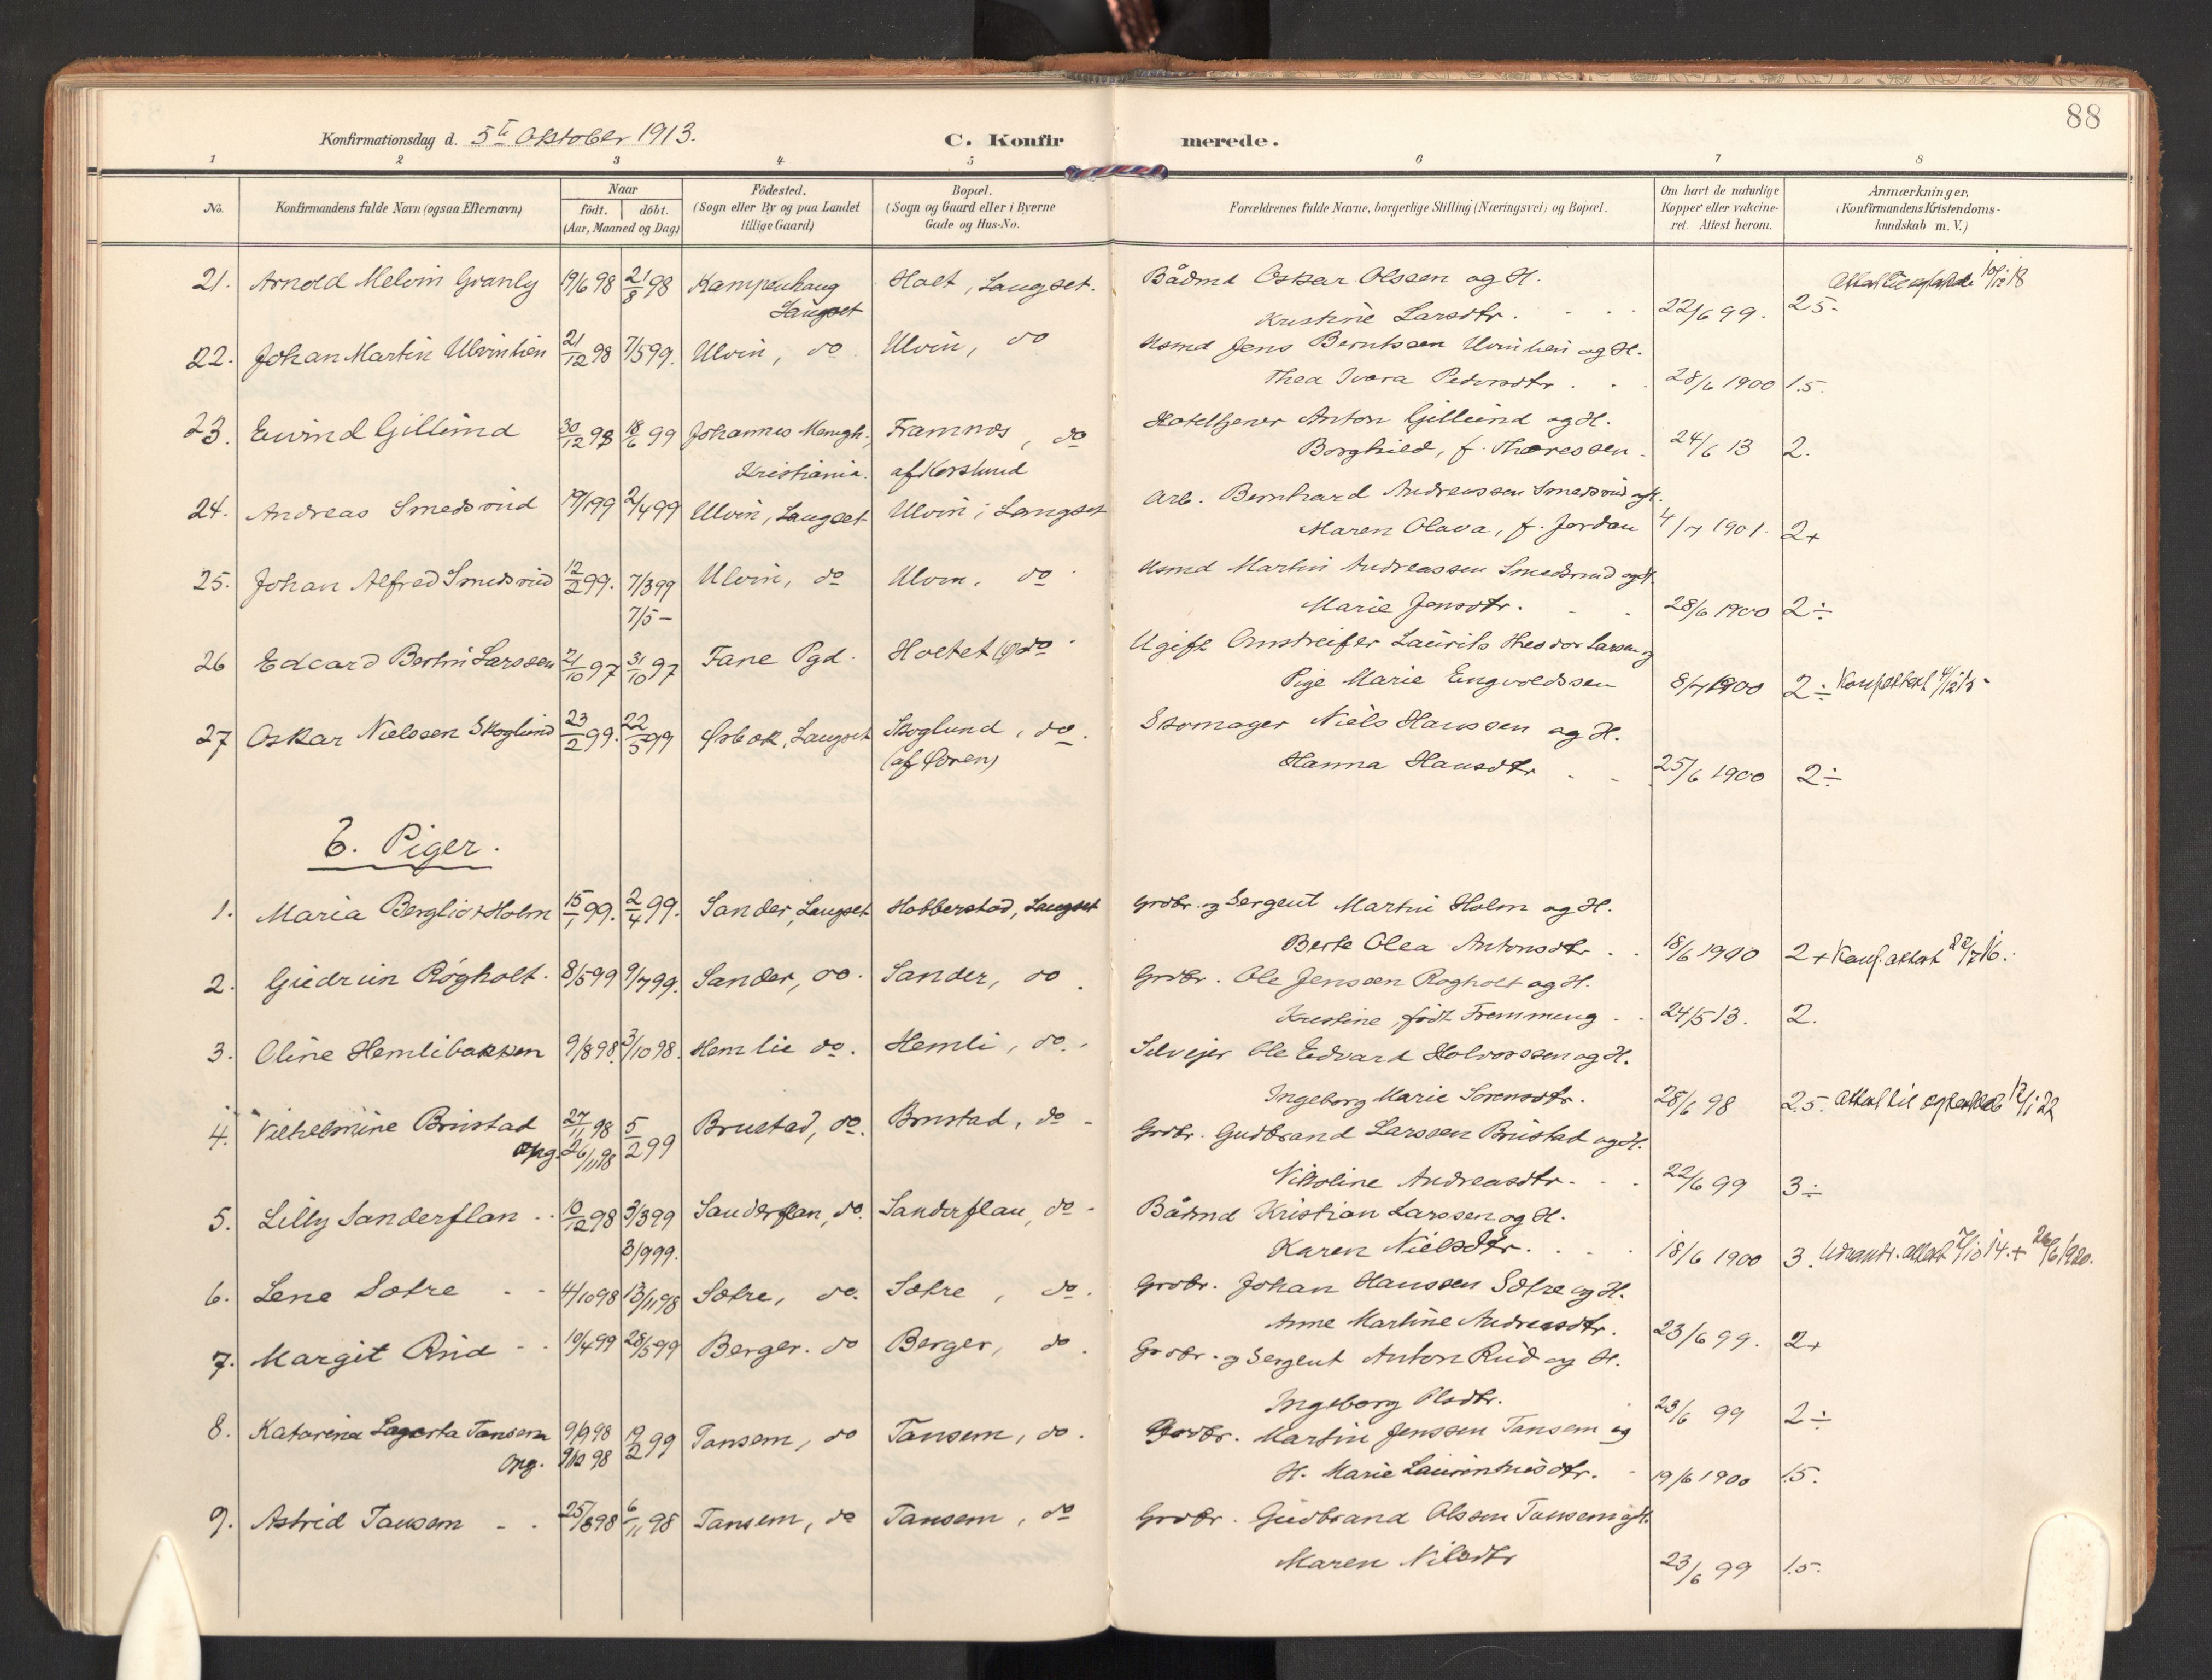 88
Konfirmationsdag d. 5te Oktober 1913. C. Konfirmerede.
1 2 3 4 5 6 7 8
No. Konfirmandens fulde Navn (ogsaa Efternavn) Naar født. døbt. (Aar, Maaned og Dag) Fødested. (Sogn eller By og paa Landet tillige Gaard) Bopæl. (Sogn og Gaard eller i Byerne Gade og Hus-No. Forældrenes fulde Navne, borgerlige Stilling (Næringsvei) og Bopæl. Om havt de naturlige Kopper eller vakcineret. Attest herom. Anmærkninger. (Konfirmandens Kristendomskundskab m. V.)
21. Arnold Melvin Granly 19/6 98 21/8 98 Kampenhaug Langset Holt, Langset. Bådmd Oskar Olssen og H.
Kristine Larsdtr. 22/6 99. 2.5.
22. Johan Martin Ulvinhien 21/12 98 7/5 99. Ulvin, do Ulvin, do Husmd Jens Berntssen Ulvinhen og H.
Thea Ivara Pedersdtr. 28/6 1900 1.5.
23. Eivind Gillund 30/12 98 18/6 99 Johannes Menigh. Kristiania. Framnos, do af Korslund Hotelkjener Anton Gillund og H.
Borghild, f. Thoressen. 24/6 13 2.
24. Andreas Smedsrud 19/1 99 2/4 99 Ulvin, Langset Ulvin, Langset Arb. Bernhard Andreassen Smedsrud og H.
Maren Olava, f. Jordan 4/7 1901. 2+
25. Johan Alfred Smedsrud 12/2 99. 7/3 99 7/5 – Ulvin, do Ulvin, do Husmd Martin Andreassen Smedsrud og H.
Marie Jensdtr. 28/6 1900 2÷
26 Edvard Bertin Larssen 21/10 97 31/10 97 Fane Pgd. Holtet do Ugift Omstreifer Laurits Theodor Larssen og
Pige Marie Engvoldssen 8/7 1900 2÷ Konf.attest
27 Oskar Nielssen Skoglund 23/2 99. 22/5 99 Østbok, Langset Skoglund, do. (af Øvren) Skomager Niels Hanssen og H.
Hanna Hansdtr 25/6 1900 2÷
b. Piger.
1. Maria Bergliot Holm 15/1 99. 2/4 99. Sander, Langset Habberstad, Langset Grdbr. og Sergent Martin Holm og H.
Berte Olea Antonsdtr. 18/6 1900 2+ Konf.attest 22/7 16.
2. Gudrun Rögholt. 8/5 99 9/7 99. Sander, do. Sander, do Grdbr. Ole Jenssen Rogholt og H.
Kristine, født Fremming 24/5 13. 2.
3. Oline Hemlibakken 9/8 98 2/10 98. Hemlie do. Hemli, do. Selvejer Ole Edvard Halvorssen og H.
Ingeborg Marie Sorensdtr. 28/6 98 2.5. Attest til egteskab 12/1 22
4. Vilhelmine Brustad 27/11 98 opg. 26/11 98 5/2 99 Brustad, do. Brustad, do Grdbr. Gudbrand Larssen Brustad og H.
Nikoline Andreasdtr. 22/6 99 3÷
5. Lilly Sanderflan 10/12 98 3/3 99 3/9 99. Sanderflan, do. Sanderflan, do Bådmd Kristian Larssen og H.
Karen Nielsdtr. 18/6 1900 3. Udvandr. attest 7/10 14. + 26/6 1920.
6. Lene Sætre 4/10 98 13/11 98 Sætre, do. Sætre, do. Grdbr. Johan Hanssen Sætre og H.
Anne Martine Andreasdtr. 23/6 99. 2+
7. Margit Rud 10/4 99 28/5 99 Berger. do Berger, do. Grdbr. og Sergent Anton Rud og H.
Ingeborg Olsdtr. 23/6 99 2÷
8. Katarina Lagerta Tansem 9/9 98 opg. 9/10 98 19/2 99 Tansem, do Tansem, do. Grdbr. Martin Jenssen Tansem og
H. Marie Laurentiusdtr. 19/6 1900 1.5.
9. Astrid Tansem 25/8 98 6/11 98 Tansem, do Tansem, do Grdbr. Gudbrand Olssen Tansem og H.
Maren Nilsdtr 23/6 99 1.5.